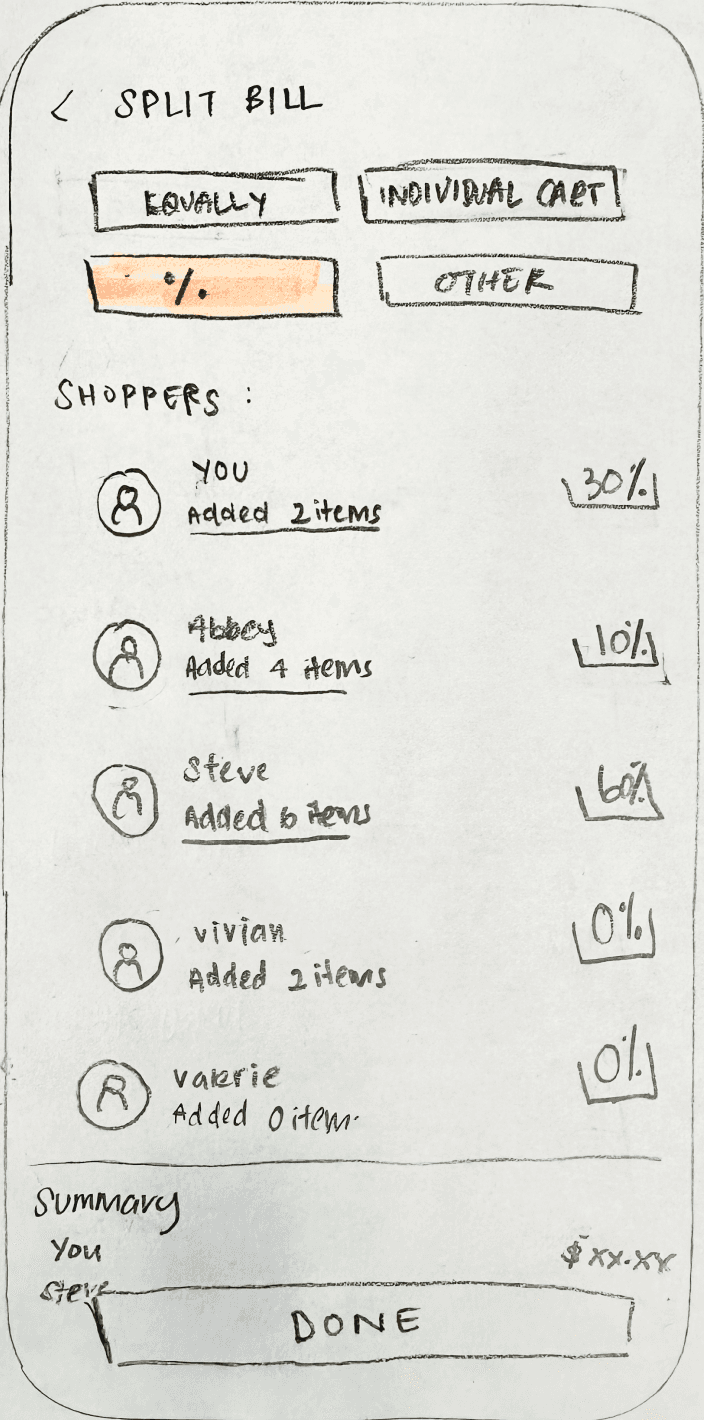 < SPLIT BILL
EQUALLY
INDIVIDUAL CART
%
OTHER
SHOPPERS :
YOU
Added 2 items
30%
Abbey
Added 4 items
10%
Steve
Added 6 items
60%
vivian
Added 2 items
0%
valerie
Added 0 item.
0%
Summary
You
$xx.xx
Steve
DONE